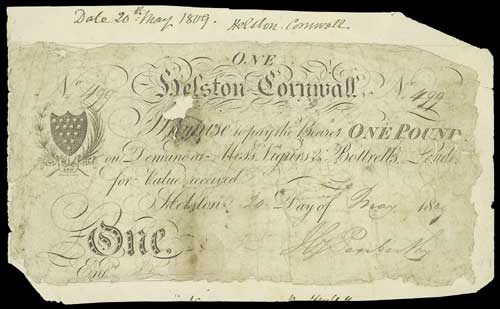 Date 20th May 1809. Helston. Cornwall
ONE
No 499 Helston Cornwall No 499
I Promise to pay the Bearer ONE POUND
on Demand at Mess. Vigurs & Bottrells,
for Value received
Helston 20 Day of May 180
One.
Ent.